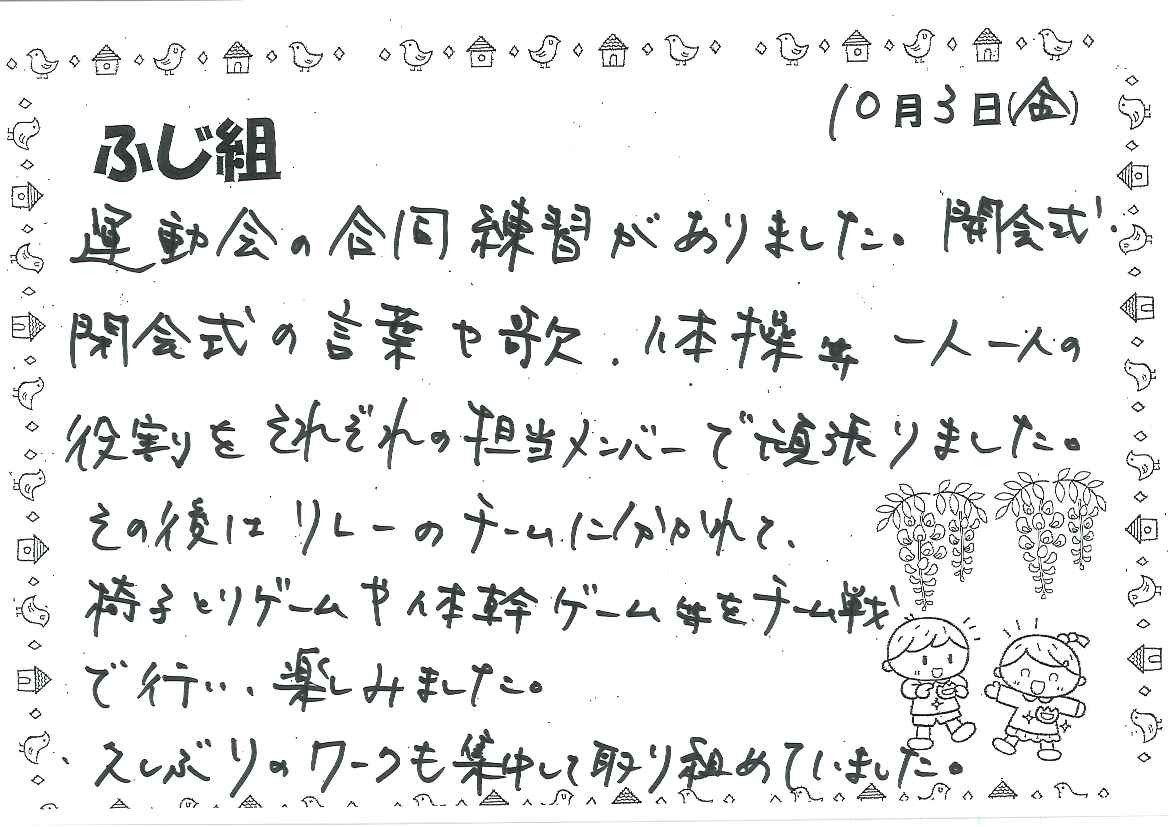 10月3日(金)
ふじ組
運動会の合同練習がありました。開会式・
閉会式の言葉や歌、体操等一人一人の
役割りをそれぞれの担当メンバーで頑張りました。
その後はリレーのチームに分かれて、
椅子とりゲームや体幹ゲーム等をチーム戦
で行い、楽しみました。
久しぶりのワークも集中して取り組めていました。